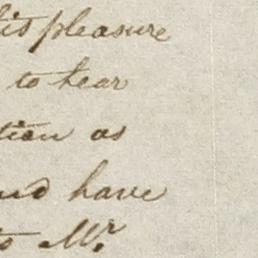 his pleasure
to hear
tion as
and have
to Mr.